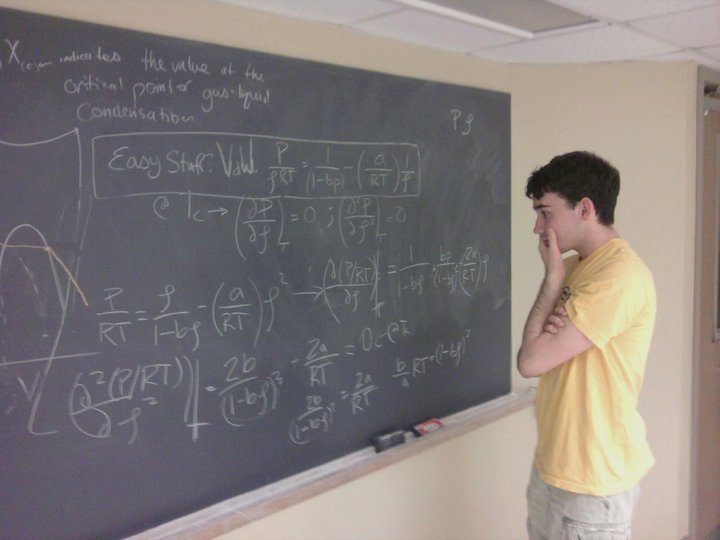 X indicates the value at the
critical point of gas-liquid
Condensation
Pρ
Easy Stuff: VdW. P/ρRT = 1/(1-bρ) - (a/RT) 1/ρ
@ Tc → (∂P/∂ρ)|T = 0 ; (∂²P/∂ρ²)|T = 0
P/RT = ρ/(1-bρ) - (a/RT) ρ² → (∂(P/RT)/∂ρ)|T = 1/(1-bρ) bρ/(1-bρ)² (2a/RT) ρ
(∂²(P/RT)/∂ρ²)|T = 2b/(1-bρ)³ - 2a/RT = 0
2b/(1-bρ)³ = 2a/RT b/a RT = (1-bρ)³
V